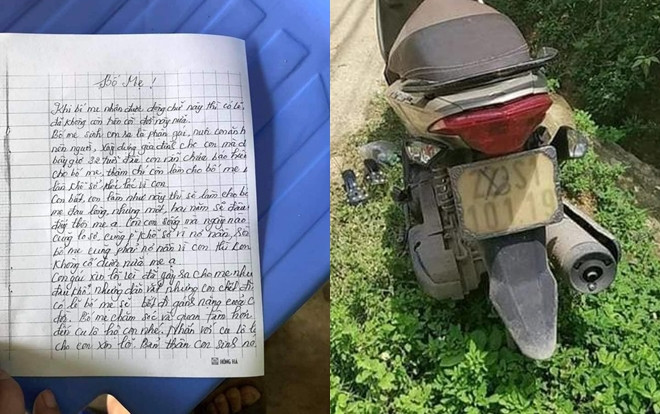 Bố Mẹ !
Khi bố mẹ nhận được dòng chữ này thì có lẽ
đã không còn trên cõi đời này nữa.
Bố mẹ sinh con ra là phận gái, nuôi con ăn h
nên người, xây dựng gia đình cho con mà đ
bây giờ 32 tuổi đầu con vẫn chưa báo hiếu
cho bố mẹ thậm chí còn làm cho bố mẹ
khổ sở vì con.
Con biết con làm như này thì sẽ làm cho bố
mẹ đau lòng, nhưng một, hai năm sẽ
thôi mẹ ạ. Còn con sống mà ngày nào
cũng lo sợ, cũng khổ sở vì nợ nần,
bố mẹ cũng phải nợ nần vì con thì con
không cố được nữa mẹ ạ
Con xin lỗi vì đã gây ra cho mẹ
đau khổ, nhưng dằn vặt. Nhưng con chết đi
có lẽ bố mẹ sẽ bớt đi gánh nặng cuộc
đời. Bố mẹ chăm sóc và quan tâm hơn
cu tô hộ con nhé. Nhắn với cu tô là
cho con xin lỗi. Bản thân con sinh
HỒNG HÀ